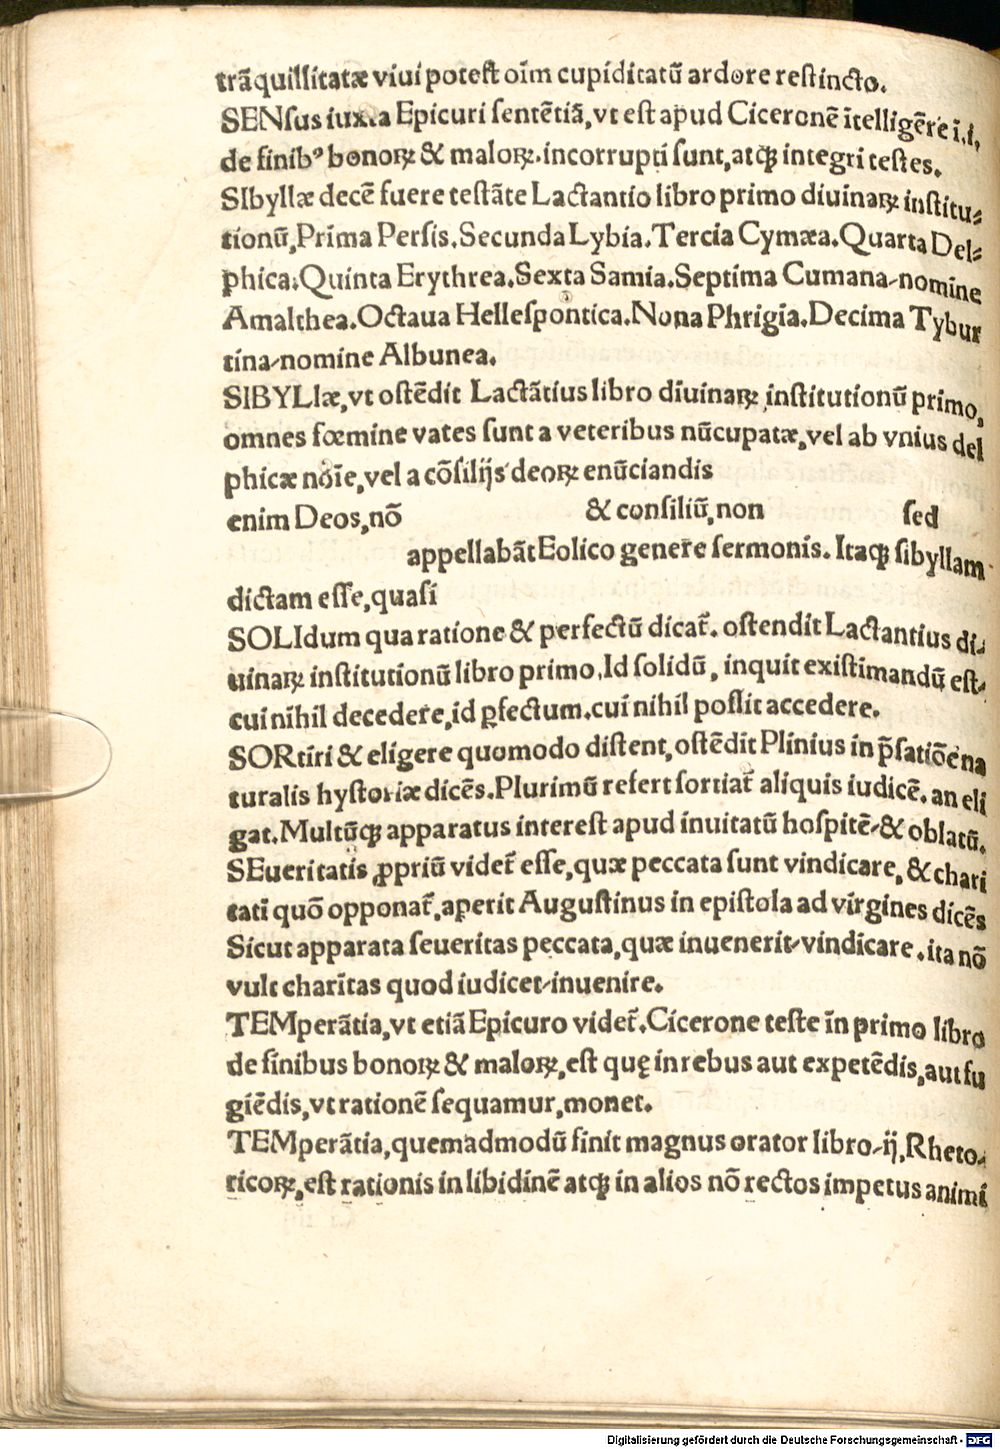 trāquillitatæ viui potest oīm cupiditatū ardore restincto.
SENsus iuxta Epicuri sentētiā, vt est apud Ciceronē ītelligēre ī.i,
de finibꝰ bonoꝝ & maloꝝ. incorrupti sunt, atqꝫ integri testes.
SIbyllæ decē fuere testāte Lactantio libro primo diuinaꝝ institu⸗
tionū, Prima Persis. Secunda Lybia. Tercia Cymæa. Quarta Del⸗
phica. Quinta Erythrea. Sexta Samia. Septima Cumana-nomine
Amalthea. Octaua Hellespontica. Nona Phrigia. Decima Tybur
tina-nomine Albunea.
SIBYLlæ, vt ostēdit Lactātius libro diuinaꝝ institutionū primo,
omnes fœmine vates sunt a veteribus nūcupatæ, vel ab vnius del
phicæ noīe, vel a cōsilijs deoꝝ enūciandis
enim Deos, nō & consiliū, non sed
appellabāt Eolico genere sermonis. Itaqꝫ sibyllam
dictam esse, quasi
SOLIdum qua ratione & perfectū dicat̄. ostendit Lactantius di⸗
uinaꝝ institutionū libro primo. Id solidū, inquit existimandū est⸗
cui nihil decedere, id ꝑfectum. cui nihil possit accedere.
SORtiri & eligere quomodo distent, ostēdit Plinius in p̄fatiōe na
turalis hystoriæ dicēs. Plurimū refert sortiat̄ aliquis iudicē. an eli
gat. Multūqꝫ apparatus interest apud inuitatū hospitē-& oblatū.
SEueritatis ꝓpriū videt̄ esse, quæ peccata sunt vindicare, & chari
tati quō opponat̄, aperit Augustinus in epistola ad virgines dicēs
Sicut apparata seueritas peccata, quæ inuenerit-vindicare. ita nō
vult charitas quod iudicet-inuenire.
TEMperātia, vt etiā Epicuro videt̄. Cicerone teste īn primo libro
de finibus bonoꝝ & maloꝝ, est quę in rebus aut expetēdis, aut fu
giēdis, vt rationē sequamur, monet.
TEMperātia, quemadmodū finit magnus orator libro-ij, Rheto⸗
ricoꝝ, est rationis in libidinē atqꝫ in alios nō rectos impetus animi
Digitalisierung gefördert durch die Deutsche Forschungsgemeinschaft - DFG